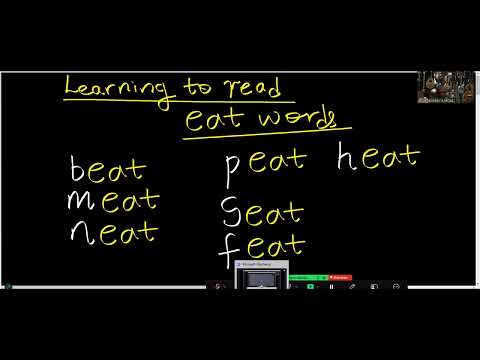 Learning to read
eat words
beat peat heat
meat seat
neat feat